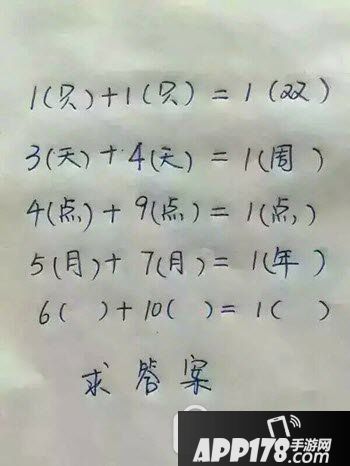 1(只)+1(只)=1(双)
3(天)+4(天)=1(周)
4(点)+9(点)=1(点)
5(月)+7(月)=1(年)
6( )+10( )=1( )
求答案
APP178手游网
.com